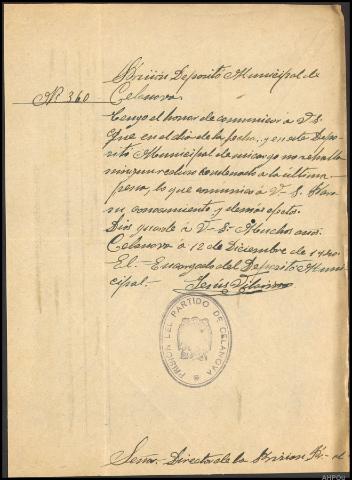 Prisión Deposito Municipal de
Nº 360
Celanova
Tengo el honor de comunicar a V.S.
que en el dia de la fecha, y en este Depo-
sito Municipal de mi cargo no se halla
ningun recluso condenado a la ultima
pena, lo que comunico á V-S. Para
su conocimiento y demás efectos.
Dios guarde á V-S- Muchos anos.
Celanova á 12 de Diciembre de 1940.
El- Encargado del Deposito Muni-
cipal.- Jesus
PRISION DEL PARTIDO DE CELANOVA
Señor- Director de la Prision
AHPOU